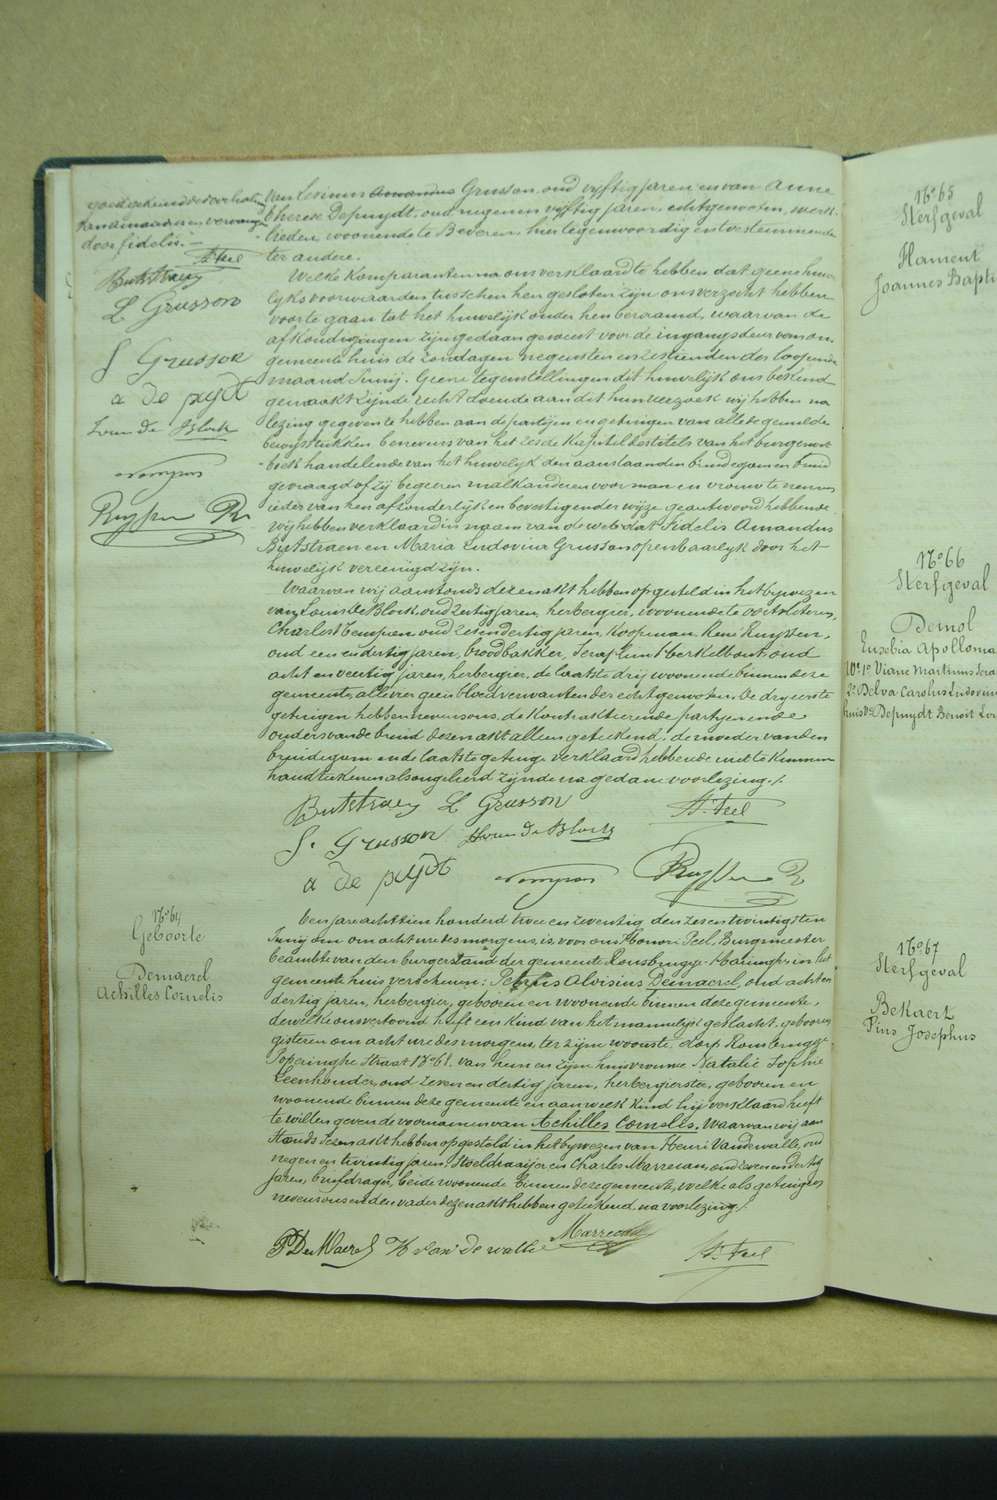 goedgekeurd de doorhaling
van amandus en vervangen
door fidelis. —
H. Peel
Butstraen
L Grusson
S Grusson
a de puydt
Louis De Block
Ruyssen R
van Lesinus Amandus Grusson, oud vyftig jaren en van Anne
therese Depuydt, oud negen en vyftig jaren, echtgenooten, werk-
lieden, woonende te Beveren, hier tegenwoordig en toestemmende
ter andere.
Welke komparanten na ons verklaard te hebben dat geene huwe-
lyksvoorwaarden tusschen hen gesloten zyn ons verzocht hebben
voorte gaan tot het huwelyk onder hen beraamd, waarvan de
afkondigingen zyn gedaan geweest voor de ingangsdeur van ons
gemeente huis de zondagen negensten en zestienden der loopende
maand Junij. Geene tegenstellingen dit huwelyk ons bekend
gemaakt zynde recht doende aan dit hun verzoek wij hebben na
lezing gegeven te hebben aan de partijen en getuigen van alle de gemelde
bewysstukken benevens van het zesde kapittel des titels van het burgerwet-
boek handelende van het huwelyk den aanstaanden bruidegom en bruid
gevraagd of zy begeeren malkanderen voor man en vrouw te nemen
ieder van hen afzonderlyk en bevestigender wyze geantwoord hebbende
wy hebben verklaard in naam van de wet dat Fidelis Amandus
Butstraen en Maria Ludovica Grusson openbaarlyk door het
huwelyk vereenigd zyn.
Waarvan wij aanstonds dezen akt hebben opgesteld in het bywezen
van Louis De Block oud zestig jaren, herbergier, woonende te Oostvleteren,
Charles Tempren oud zes en dertig jaren, koopman, René Ruyssen,
oud een en dertig jaren, broodbakker, Seraphin Herkelbout oud
acht en veertig jaren, herbergier, de laatste dry woonende binnen deze
gemeente, alle vier geen bloedverwanten der echtgenoten. De dry eerste
getuigen hebben nevens ons, de kontrakteerende partyen en de
ouders van de bruid dezen akt alleen geteekend, de moeder van den
bruidegom en de laatste getuige verklaard hebbende niet te kunnen
handteekenen als ongeleerd zynde na gedane voorlezing ./.
Butstraen L Grusson H. Peel
S. Grusson Louis De Block
a de puydt Ruyssen R
N° 64
Geboorte
Demaerel
Achilles Cornelis
Ven jare achttien honderd twee en zeventig den zes en twintigsten
Junij om om acht ure des morgens, is voor ons Honoré Peel, Burgmeester
beambte van den burgerstand der gemeente Rousbrugge-Haringhe in het
gemeente huis verschenen: Petrus Aloisius Demaerel, oud acht en
dertig jaren, herbergier, gebooren en woonende binnen deze gemeente,
dewelke ons vertoond heeft een kind van het mannelyk geslacht, gebooren
gisteren om acht ure des morgens, ter zyne woonste, dorp Rousbrugge
Poperinghe straat N° 61. van hem en zyne huisvrouwe Natalie Sophie
Leenhouder, oud zeven en dertig jaren, herbergierster, gebooren en
woonende binnen deze gemeente en aan welk kind hij verklaard heeft
te willen geven de voornamen van Achilles Cornelis. Waarvan wij aan
stonds dezen akt hebben opgesteld in het bywezen van Henri Vandewalle, oud
negen en twintig jaren, stoeldraaijer en Charles Marreean, oud zeven en dertig
jaren, briefdrager, beide woonende binnen deze gemeente, welke als getuigen
nevens ons en den vader dezen akt hebben geteekend na voorlezing ./.
P De Maerel H van de walle Marreeau H. Peel
N° 65
Sterfgeval
Hament
Joannes Bapti
N° 66
Sterfgeval
Demol
Eusebia Apollonia
10° 1° Viane Martinus Sera
2° Belva Carolus Ludovicus
huisv. Depuydt Benoit Lou
N° 67
Sterfgeval
Bekaert
Pius Josephus